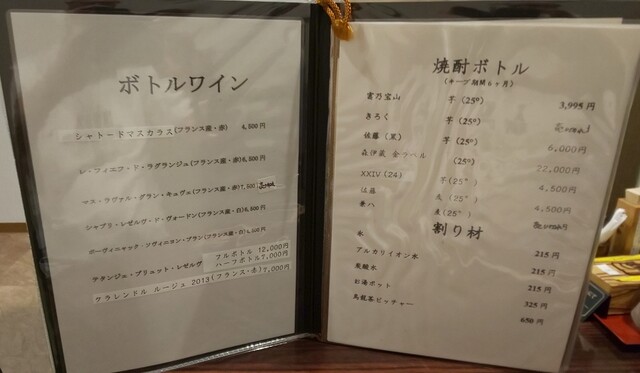 ボトルワイン
シャトードマスカラス(フランス産・赤) 4,500円
レ・フィエフ・ド・ラグランジュ(フランス産・赤)6,500円
マス・ラヴァル・グラン・キュヴェ(フランス産・赤)7,500
シャブリ・レゼルヴ・ド・ヴォードン(フランス産・白)6,500円
ポーヴィニャック・ソヴィニコン・ブラン(フランス産・白)4,500円
テタンジェ・ブリュット・レゼルヴ フルボトル 12,000円
ハーフボトル7,000円
クラレンドル ルージュ 2013(フランス・赤)7,000円
焼酎ボトル
(キープ期間6ヶ月)
富乃宝山 芋(25º) 3,995円
きろく 芋(25º)
佐藤(黒) 芋(25º) 6,000円
森伊蔵 金ラベル (25º) 22,000円
XXIV(24) 芋(25°) 4,500円
佐藤 麦(25°) 4,500円
兼八 麦(25°)
割り材
氷 215円
アルカリイオン水 215円
炭酸水 215円
お湯ポット 325円
烏龍茶ピッチャー 650円